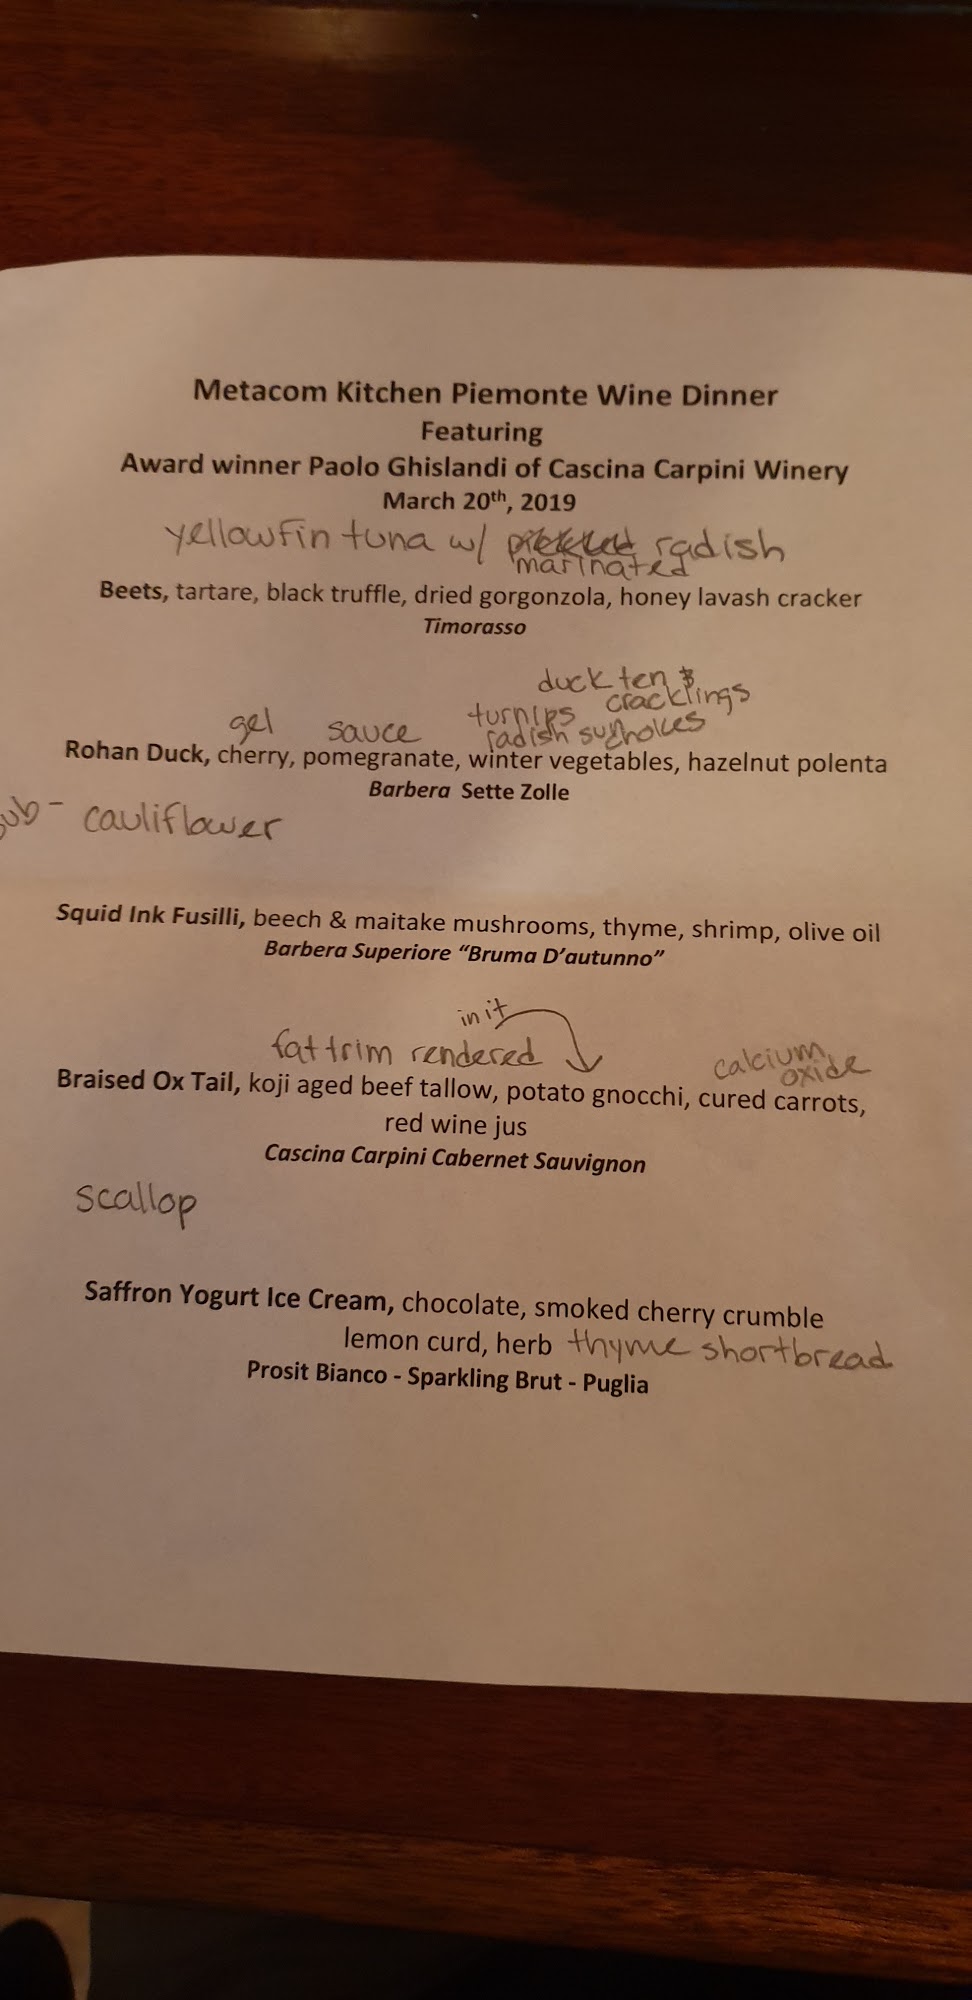 Metacom Kitchen Piemonte Wine Dinner
Featuring
Award winner Paolo Ghislandi of Cascina Carpini Winery
March 20th, 2019
yellowfin tuna w/ pickled radish
marinated
Beets, tartare, black truffle, dried gorgonzola, honey lavash cracker
Timorasso
duck ten &
cracklings
gel sauce turnips
radish sunchokes
Rohan Duck, cherry, pomegranate, winter vegetables, hazelnut polenta
Barbera Sette Zolle
sub - cauliflower
Squid Ink Fusilli, beech & maitake mushrooms, thyme, shrimp, olive oil
Barbera Superiore “Bruma D’autunno”
in it
fat trim rendered
calcium
oxide
Braised Ox Tail, koji aged beef tallow, potato gnocchi, cured carrots,
red wine jus
Cascina Carpini Cabernet Sauvignon
scallop
Saffron Yogurt Ice Cream, chocolate, smoked cherry crumble
lemon curd, herb thyme shortbread
Prosit Bianco - Sparkling Brut - Puglia